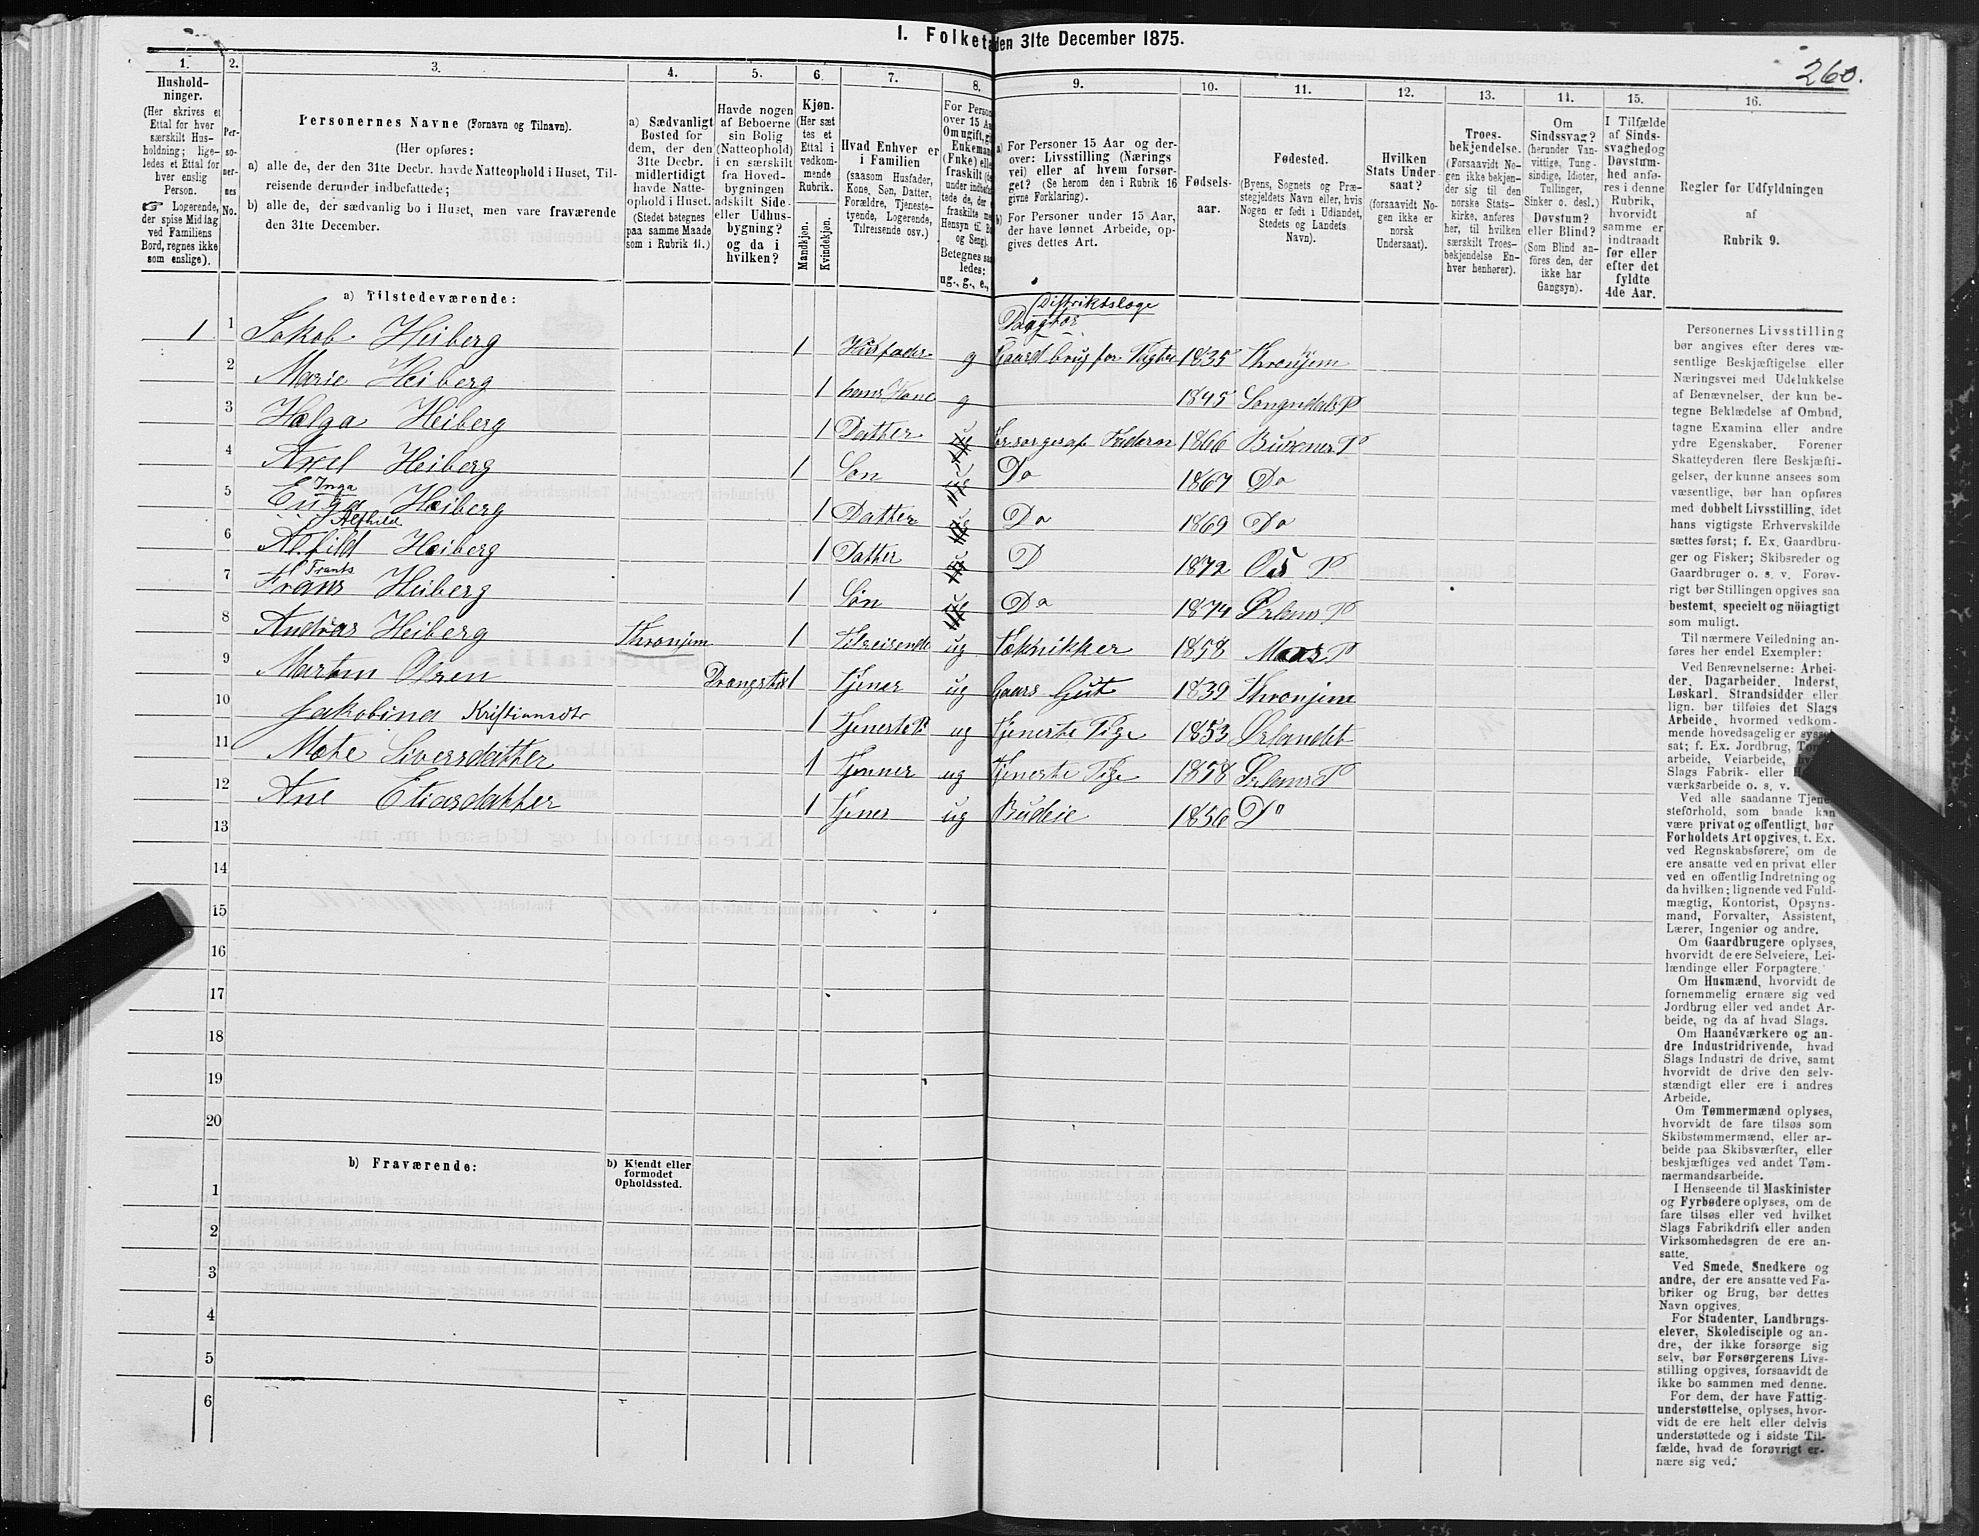 I. Folketæ den 31te December 1875.
260.
1.
2.
3.
4.
5.
6.
7.
8.
9.
10.
11.
12.
13.
14.
15.
16.
Hushold-
ninger.
(Her skrives et
Ettal for hver
særskilt Hus-
holdning; lige-
ledes et Ettal for
hver enslig
Person.
☞ Logerende,
der spise Middag
ved Familiens
Bord, regnes ikke
som enslige).
Per-
so-
ner-
nes
No.
Personernes Navne (Fornavn og Tilnavn).
(Her opføres:
a) alle de, der den 31te Decbr. havde Natteophold i Huset, Til-
reisende derunder indbefattede;
b) alle de, der sædvanlig bo i Huset, men vare fraværende
den 31te December.
a) Sædvanligt
Bosted for
dem, der den
31te Decbr.
midlertidigt
havde Natte-
ophold i Huset.
(Stedet betegnes
paa samme Maade
som i Rubrik 11.)
Havde nogen
af Beboerne
sin Bolig
(Natteophold)
i en særskilt
fra Hoved-
bygningen
adskilt Side-
eller Udhus-
bygning?
og da i
hvilken?
Kjøn.
(Her sæt-
tes et
Ettal i
vedkom-
mende
Rubrik.
Mandkjøn.
Kvindekjøn.
Hvad Enhver er
i Familien
(saasom Husfader,
Kone, Søn, Datter,
Forældre, Tjeneste-
tyende, Logerende,
Tilreisende osv.)
For Person
over 15 Aa
Om ugift, gi
Enkeman
(Fnke) elle
fraskilt (i
under indbefa
tede de, der
fraskilte me
Hensyn til Bo
og Seng).
Betegnes saa
ledes:
ug., g., e.,
a) For Personer 15 Aar og der-
over: Livsstilling (Nærings
vei) eller af hvem forsør-
get? (Se herom den i Rubrik 16
givne Forklaring).
b) For Personer under 15 Aar,
der have lønnet Arbeide, op-
gives dettes Art.
Fødsels-
aar.
Fødested.
(Byens, Sognets og Præ-
stegjeldets Navn eller, hvis
Nogen er født i Udlandet,
Stedets og Landets
Navn).
Hvilken
Stats Under-
saat?
(forsaavidt No-
gen ikke er
norsk
Undersaat).
Troes-
bekjendelse.
(Forsaavidt No-
gen ikke bekjen-
der sig til den
norske Stats-
kirke, anføres
her, til hvilken
særskilt Troes-
bekjendelse En-
hver henhører).
Om
Sindssvag?
(herunder Van-
vittige, Tung-
sindige, Idioter,
Tullinger,
Sinker o. desl.)
Døvstum?
eller Blind?
(Som Blind an-
føres den, der
ikke har
Gangsyn).
I Tilfælde
af Sinds-
svaghed og
Døvstum-
hed anfø-
res i denne
Rubrik,
hvorvidt
samme er
indtraadt
før eller
efter det
fyldte
4de Aar.
Regler for Udfyldningen
af
Rubrik 9.
a) Tilstedeværende:
Distriktslæge
1 1 Jakob Heiberg 1 Husfader g Gaardbrug for 1835 Thronjem
2 Marie Heiberg 1 hans Kone g 1845 Songndals P
3 Helga Heiberg 1 Datter ug Forsørges af Faderen 1866 P
4 Axel Heiberg 1 Søn ug Do 1867 Do
Inga
5 Enga Heiberg 1 Datter ug Do 1869 Do
Alfhild
6 Alfild Heiberg 1 Datter ug D 1872 Os P
Frants
7 Frans Heiberg 1 Søn ug Do 1874 Ørlans P
8 Andras Heiberg Thronjem 1 Tilreisende ug Tæknikker 1858 P
9 Martin Olsen 1 Tjener ug Gaars Gut 1839 Thronjem
10 Jakobina Kristiansdtr 1 Tjeneste P ug Tjenerte Pige 1853 Ørlandet
11 Mæte Siversdatter 1 Tjenner ug Tjenerte Pige 1858 Ørlans P
12 Ane Eliasdatter 1 Tjener ug Budeie 1856 Do
13
14
15
16
17
18
19
20
b) Fraværende:
b) Kjendt eller
formodet
Opholdssted.
1
2
3
4
5
6
Personernes Livsstilling
bør angives efter deres væ-
sentlige Beskjæftigelse eller
Næringsvei med Udelukkelse
af Benævnelser, der kun be-
tegne Beklædelse af Ombud,
tagne Examina eller andre
ydre Egenskaber. Forener
Skatteyderen flere Beskjæfti-
gelser, der kunne ansees som
væsentlige, bør han opføres
med dobbelt Livsstilling, idet
hans vigtigste Erhvervskilde
sættes først; f. Ex. Gaardbru-
ger og Fisker; Skibsreder og
Gaardbruger o. s. v. Forøv-
rigt bør Stillingen opgives saa
bestemt, specielt og nöiagtigt
som muligt.
Til nærmere Veiledning an-
føres her endel Exempler:
Ved Benævnelserne: Arbei-
der, Dagarbeider, Inderst,
Løskarl, Strandsidder eller
lign. bør tilføies det Slags
Arbeide, hvormed vedkom-
mende hovedsagelig er syssel-
sat; f. Ex. Jordbrug, Tom
arbeide, Veiarbeide, hv
Slags Fabrik- eller H
værksarbeide o. s. v.
Ved alle saadanne Tjene-
steforhold, som baade kan
være privat og offentligt, bør
Forholdets Art opgives, t. Ex.
ved Regnskabsførere, om de
ere ansatte ved en privat eller
ved en offentlig Indretning og
da hvilken; lignende ved Fuld-
mægtig, Kontorist, Opsyns-
mand, Forvalter, Assistent,
Lærer, Ingeniør og andre.
Om Gaardbrugere oplyses,
hvorvidt de ere Selveiere, Lei-
lændinge eller Forpagtere.
Om Husmænd, hvorvidt de
fornemmelig ernære sig ved
Jordbrug eller ved andet Ar-
beide, og da af hvad Slags.
Om Haandværkere og an-
dre Industridrivende, hvad
Slags Industri de drive, samt
hvorvidt de drive den selv-
stændigt eller ere i andres
Arbeide.
Om Tømmermænd oplyses,
hvorvidt de fare tilsøs som
Skibstømmermænd, eller ar-
beide paa Skibsværfter, eller
beskjæftiges ved andet Tøm-
mermandsarbeide.
I Henseende til Maskinister
og Fyrbødere oplyses, om de
fare tilsøs eller ved hvilket
Slags Fabrikdrift eller anden
Virksomhedsgren de ere an-
satte.
Ved Smede, Snedkere og
andre, der ere ansatte ved Fa-
briker og Brug, bør dettes
Navn opgives.
For Studenter, Landbrugs-
elever, Skoledisciple og an-
dre, der ikke forsørge sig
selv, bør Forsørgerens Livs-
stilling opgives, forsaavidt de
ikke bo sammen med denne.
For dem, der have Fattig-
understøttelse, oplyses, hvor-
vidt de ere helt eller delvis
understøttede og i sidste Til-
fælde, hvad de forøvrigt er-
nære sig ved.